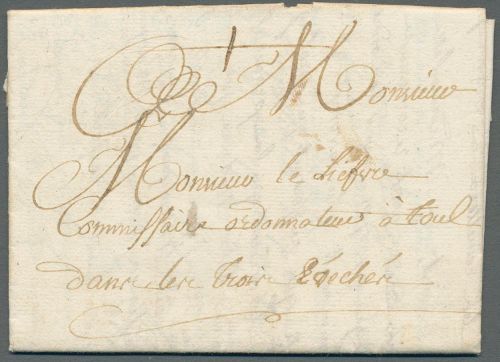 A Monsieur
Monsieur le Liefvre
Commissaire ordonnateur à toul
dans les trois Evechés